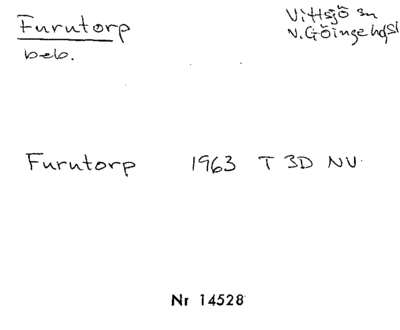 Furutorp
Vittsjö sn
beb.
N. Göinge hd SI
Furutorp 1963 T 3D NV.
Nr 14528